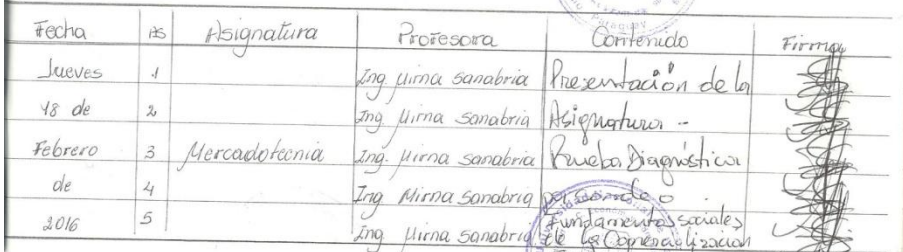 Paraguay
Fecha Hs Asignatura Profesora Contenido Firma
Jueves 1 Ing Mirna Sanabria Presentación de la
18 de 2 Ing Mirna Sanabria Asignatura -
Febrero 3 Mercadotecnia Ing. Mirna Sanabria Prueba Diagnóstica
de 4 Ing Mirna Sanabria
2016 5 Ing Mirna Sanabria Fundamentos sociales
de la Comercialización